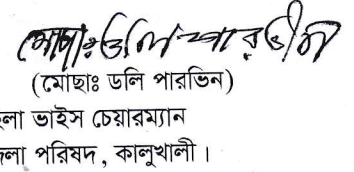 মোছাঃ ডলি পারভীন
(মোছাঃ ডলি পারভিন)
লা ভাইস চেয়ারম্যান
লা পরিষদ, কালুখালী।